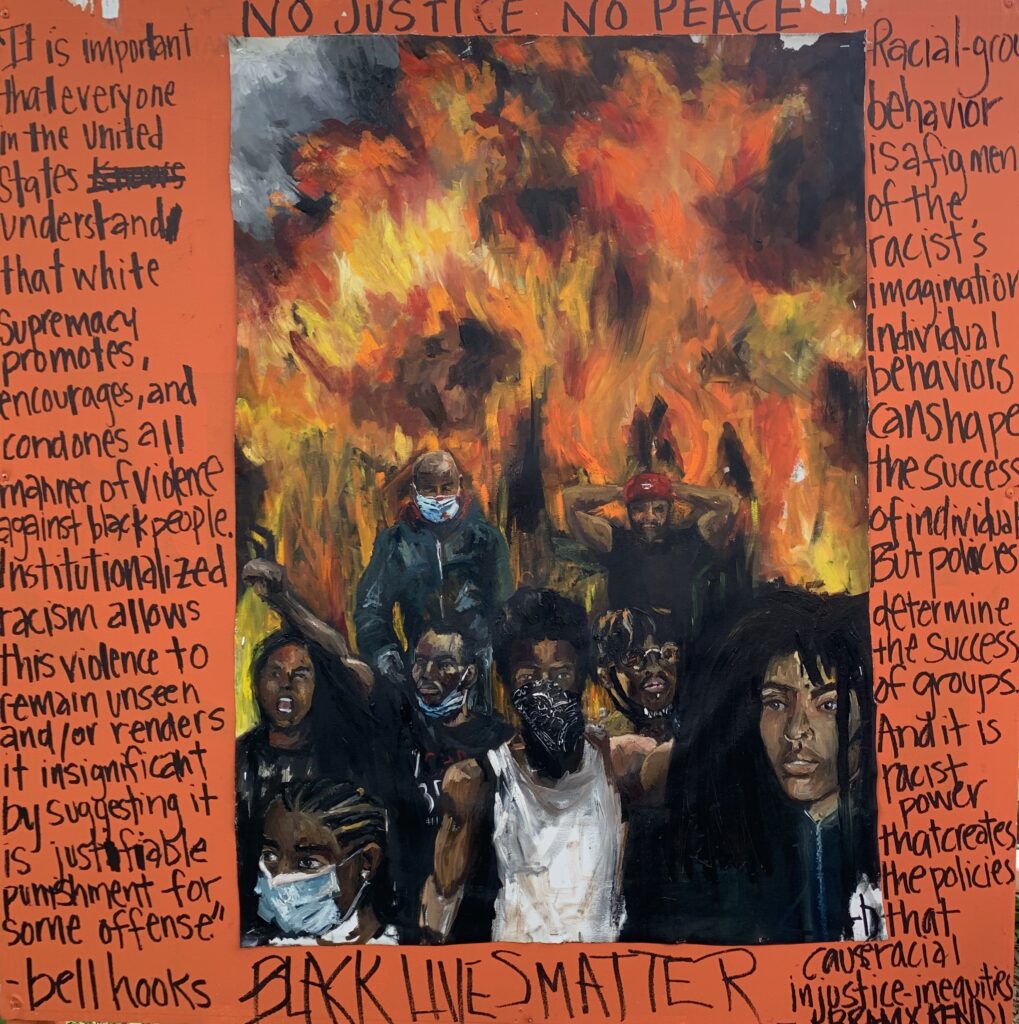 NO JUSTICE NO PEACE
"It is important
that everyone
in the United
States knows
understand
that white
Supremacy
promotes,
encourages, and
condones all
manner of violence
against black people.
Institutionalized
racism allows
this violence to
remain unseen
and/or renders
it insignificant
by suggesting it
is justifiable
punishment for
some offense"
-bell hooks
Racial-grou
behavior
is a figmen
of the
racist's
imagination
Individual
behaviors
can shape
the success
of individual
But policies
determine
the success
of groups.
And it is
racist
power
that creates
the policies
that
cause racial
injustice-inequities
KENDI
BLACK LIVES MATTER